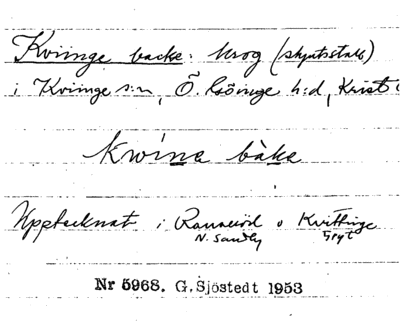 Kviinge backe: krog (skjutsstall)
i Kviinge s:n, Ö. Göinge h:d, Krist
kwíne bàke
Upptecknat i Rannaröd o Kvittinge
N. Sandby Gryt
Nr 5968. G. Sjöstedt 1953